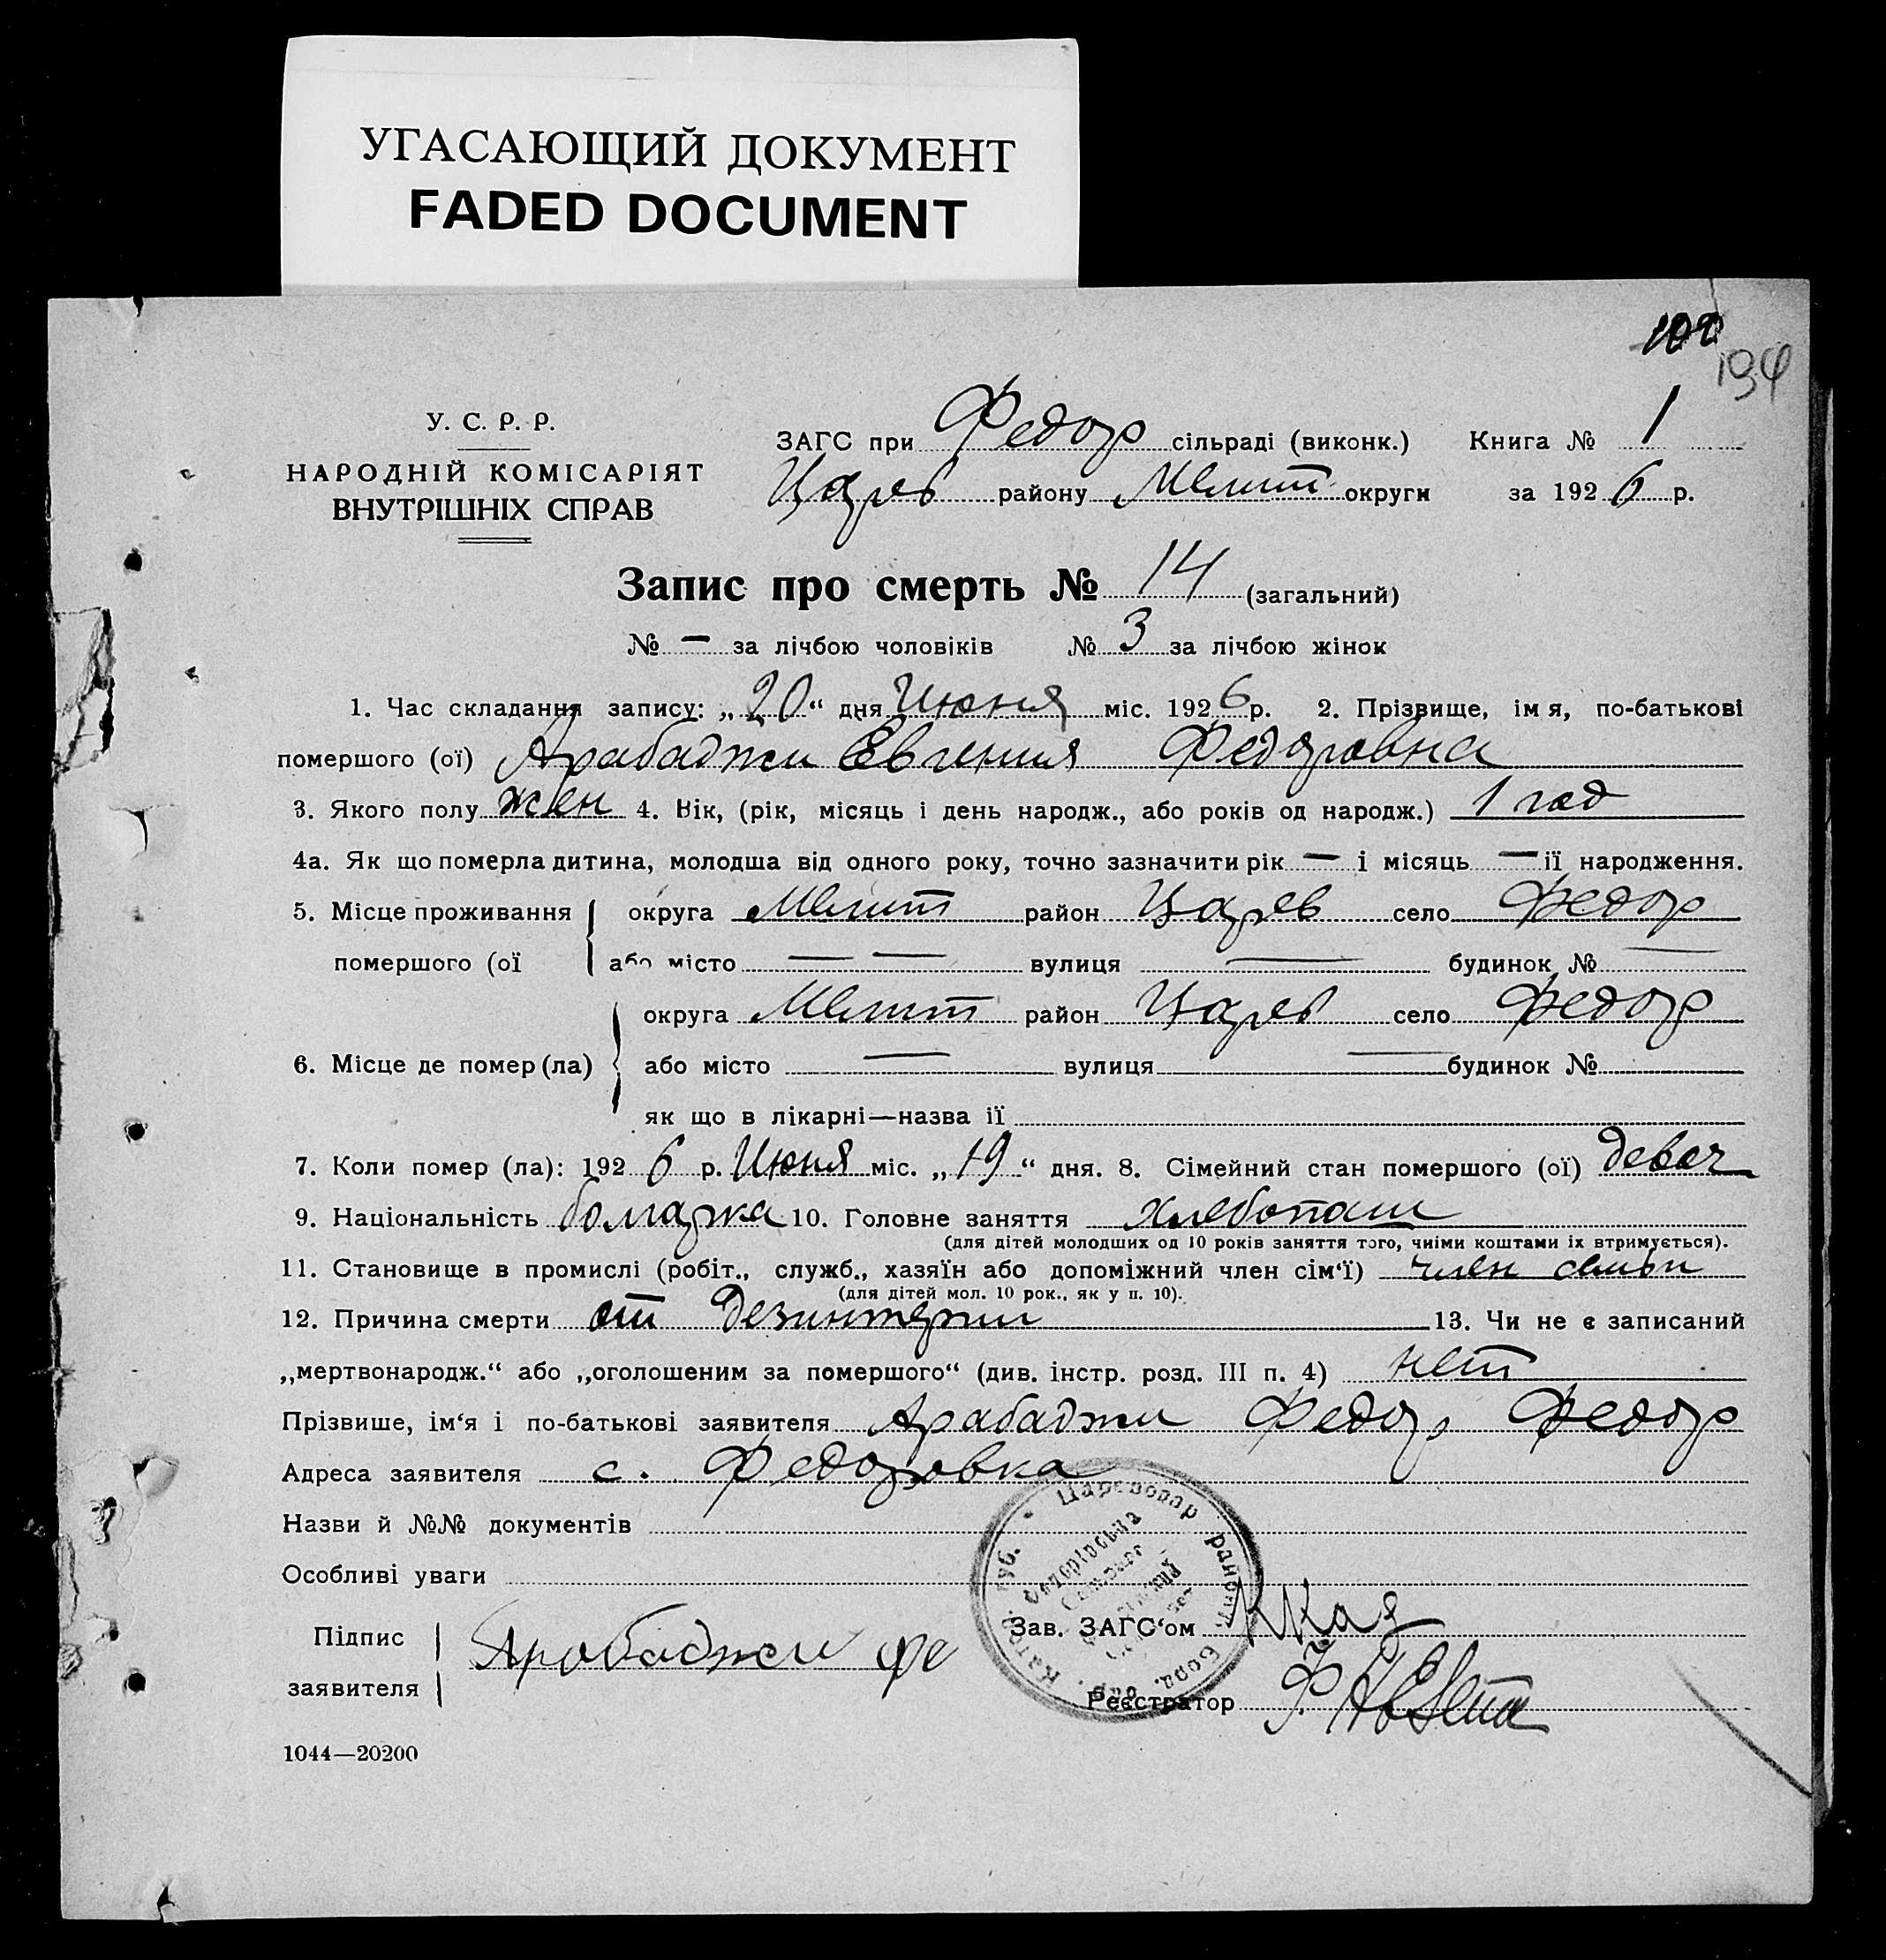 УГАСАЮЩИЙ ДОКУМЕНТ
FADED DOCUMENT
194
У. С. Р. Р.
НАРОДНІЙ КОМІСАРІЯТ
ВНУТРІШНІХ СПРАВ
ЗАГС при Федор сільраді (виконк.) Книга № 1
Царев району Мелит округи за 1926 р.
Запис про смерть № 14 (загальний)
№ — за лічбою чоловіків № 3 за лічбою жінок
1. Час складання запису: „20“ дня Июня міс. 1926 р. 2. Прізвище, імя, по-батькові
помершого (ої) Арабаджи Евгения Федоровна
3. Якого полу жен 4. Вік, (рік, місяць і день народж., або років од народж.) 1 год
4а. Як що померла дитина, молодша від одного року, точно зазначити рік — і місяць — ії народження.
5. Місце проживання округа Мелит район Царев село Федор
помершого (ої або місто — — вулиця — будинок № —
округа Мелит район Царев село Федор
6. Місце де помер (ла) або місто — вулиця — будинок №
як що в лікарні—назва ії
7. Коли помер (ла): 1926 р. Июня міс. „19“ дня. 8. Сімейний стан помершого (ої) девоч
9. Національність болгарка 10. Головне заняття хлебопаш
(для дітей молодших од 10 років заняття того, чиїми коштами їх втримується).
11. Становище в промислі (робіт., служб., хазяїн або допоміжний член сім‘ї) член семьи
(для дітей мол. 10 рок., як у п. 10).
12. Причина смерти от дезинтерии 13. Чи не є записаний
„мертвонародж.“ або „оголошеним за помершого“ (див. інстр. розд. III п. 4) нет
Прізвише, ім‘я і по-батькові заявителя Арабаджи Федор Федор
Адреса заявителя с. Федоровка
Назви й №№ документів
Особливі уваги
Підпис заявителя Арабаджи Фе
Зав. ЗАГС‘ом
Реєстратор
1044—20200